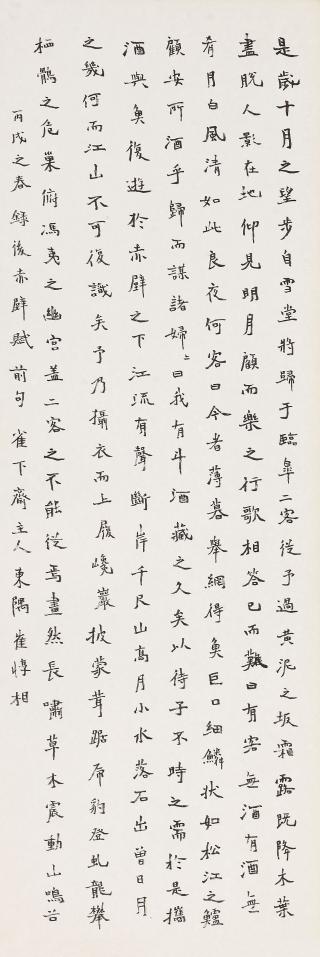 是歲十月之望步自雪堂將歸于臨皐二客從予過黃泥之坂霜露旣降木葉
盡脫人影在地仰見明月顧而樂之行歌相答已而歎曰有客無酒有酒無
肴月白風淸如此良夜何客曰今者薄暮擧網得魚巨口細鱗狀如松江之鱸
顧安所酒乎歸而謀諸婦〻曰我有斗酒藏之久矣以待子不時之需於是携
酒與魚復遊於赤壁之下江流有聲斷岸千尺山高月小水落石出曾日月
之幾何而江山不可復識矣予乃攝衣而上履巉巖披蒙茸踞虎豹登虬龍攀
栖鶻之危巢俯馮夷之幽宮盖二客之不能從焉畫然長嘯草木震動山鳴谷
丙戌之春錄後赤壁賦前句雀下齋主人東隅崔惇相